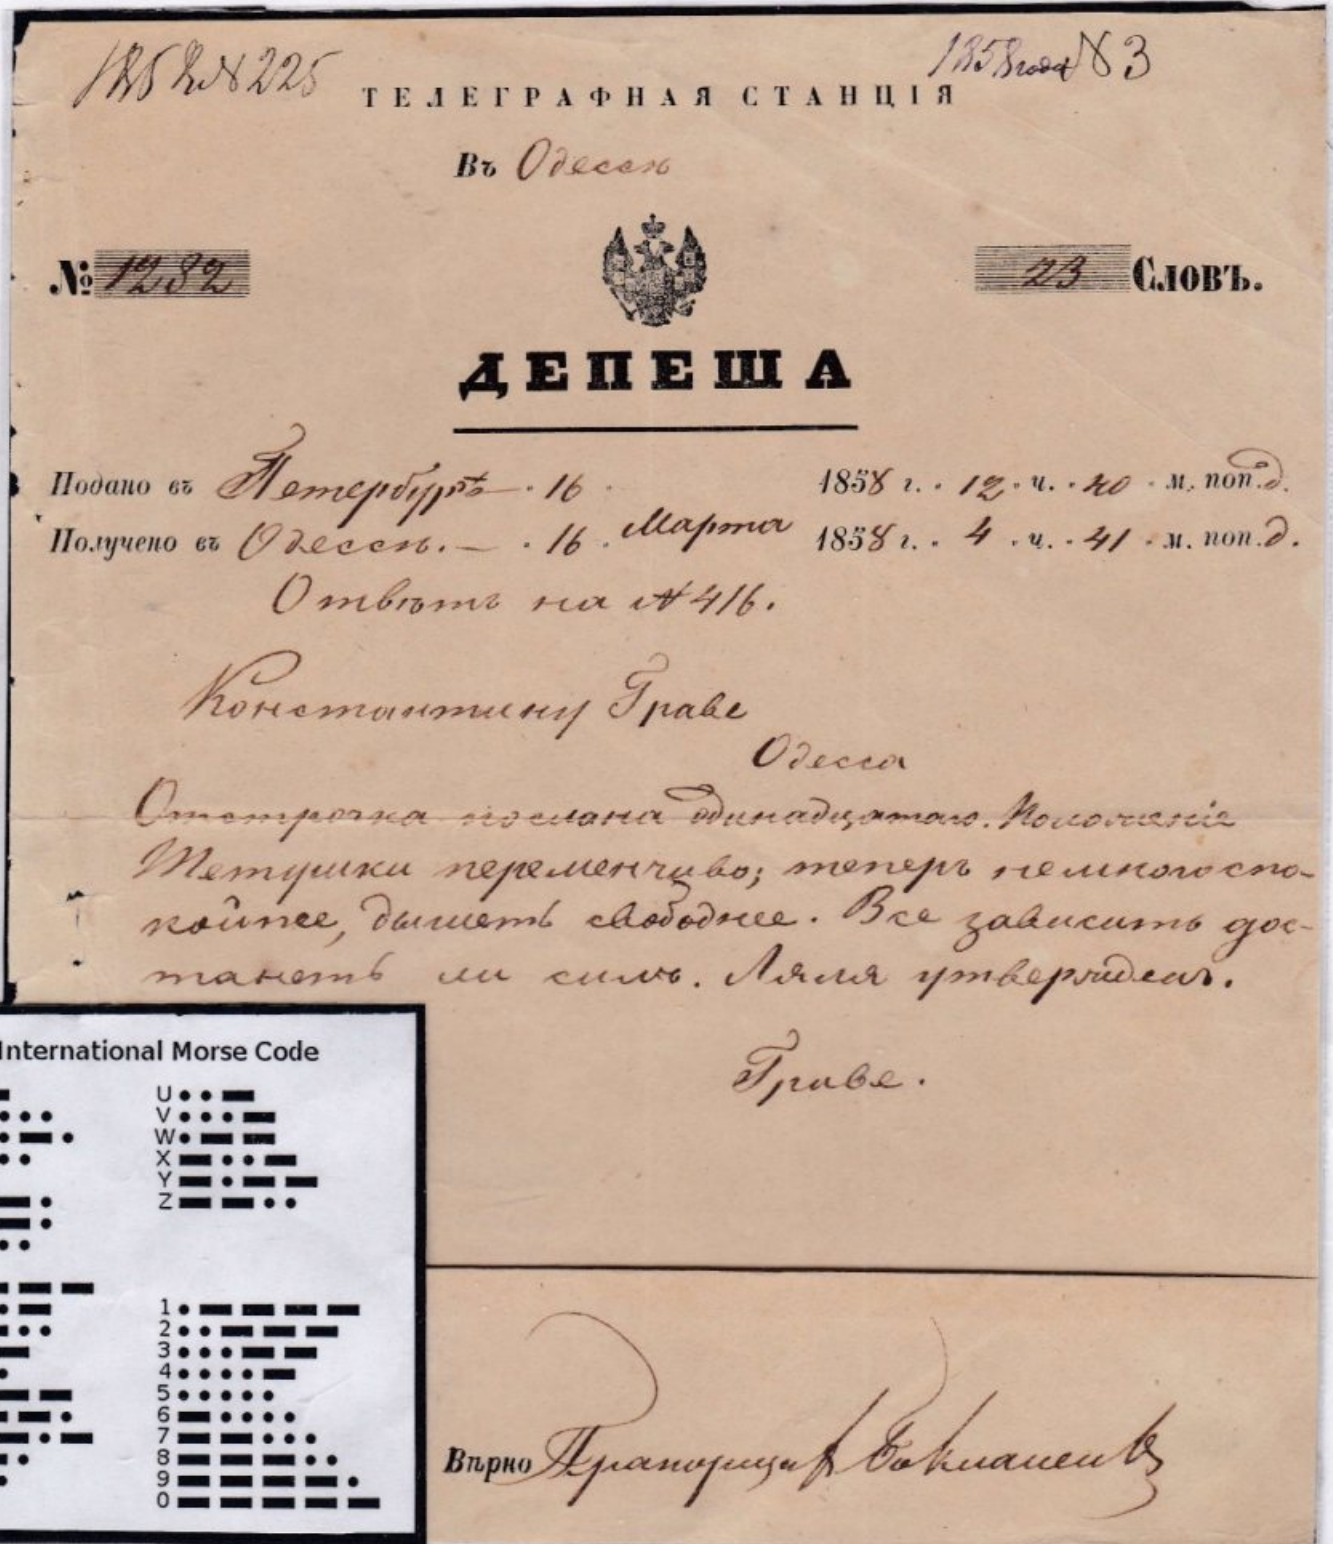 № 225
1858 года № 3
ТЕЛЕГРАФНАЯ СТАНЦІЯ
Въ Одессѣ
№ 1282
23 Словъ.
ДЕПЕША
Подано въ Петербургѣ 16 1858 г. 12 ч. 40 м. поп. д.
Получено въ Одессѣ. 16 Марта 1858 г. 4 ч. 41 м. поп. д.
Отвѣтъ на № 416.
Константину Граве
Одесса
Отстрочка послана одинадцатаго. Положеніе
Тетушки переменчиво; теперь немного спо-
койнее, дышетъ свободнее. Все зависитъ дос-
танетъ ли силъ. Ляля утвержденъ.
Граве.
International Morse Code
U • • ▬
V • • • ▬
W • ▬ ▬
X ▬ • • ▬
Y ▬ • ▬ ▬
Z ▬ ▬ • •
1 • ▬ ▬ ▬ ▬
2 • • ▬ ▬ ▬
3 • • • ▬ ▬
4 • • • • ▬
5 • • • • •
6 ▬ • • • •
7 ▬ ▬ • • •
8 ▬ ▬ ▬ • •
9 ▬ ▬ ▬ ▬ •
0 ▬ ▬ ▬ ▬ ▬
Вѣрно Прапорщикъ